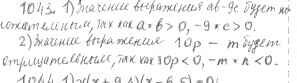 1043. 1) Значение выражения ab-9c будет по
ложательным, так как a*b > 0, -9*c > 0.
2) Значение выражение 10p - m будет
отрицательным, так как 10p < 0, -m*n < 0.